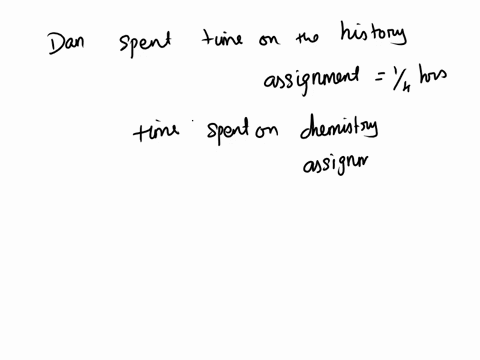 Dan spent time on the history
assignment = 1/4 hrs
time spent on chemistry
assignm